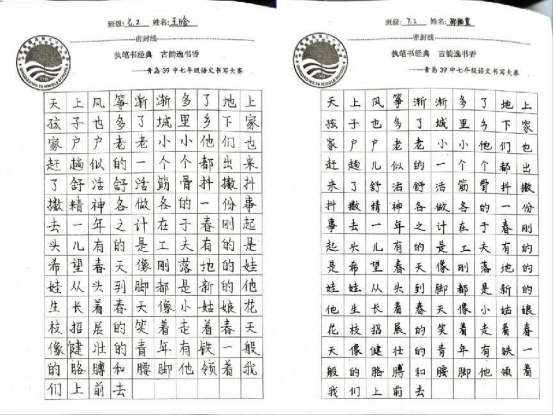 班级:7.2 姓名:王晗
密封线
执笔书经典 古韵逸书香
——青岛39中七年级语文书写大赛
天上风筝渐渐多了地上
孩子也多了城里乡下家
家户户老老小小他们也
赶趟似的一个个都出来
了舒活舒活筋骨抖擞抖
擞精神各做各的一份事
去一年之计在于春刚起
头儿有的是工夫有的是
希望春天像刚落地的娃
娃从头到脚都是新的他
生长着春天像小姑娘花
枝招展的笑着走着春天
像健壮的青年有铁一般
的胳膊和腰脚他领着我
们上前去
班级:7.2 姓名:
密封线
执笔书经典 古韵逸书香
——青岛39中七年级语文书写大赛
天上风筝渐渐多了地上
孩子也多了城里乡下家
家户户老老小小他们也
赶趟儿似的一个个都出
来了舒活舒活筋骨抖擞
抖擞精神各做各的一份
事去一年之计在于春刚
起头儿有的是工夫有的
是希望春天像刚落地的
娃娃从头到脚都是新的
他生长着春天像小姑娘
花枝招展的笑着走着春
天像健壮的青年有铁一
般的胳膊和腰脚他领着
我们上前去